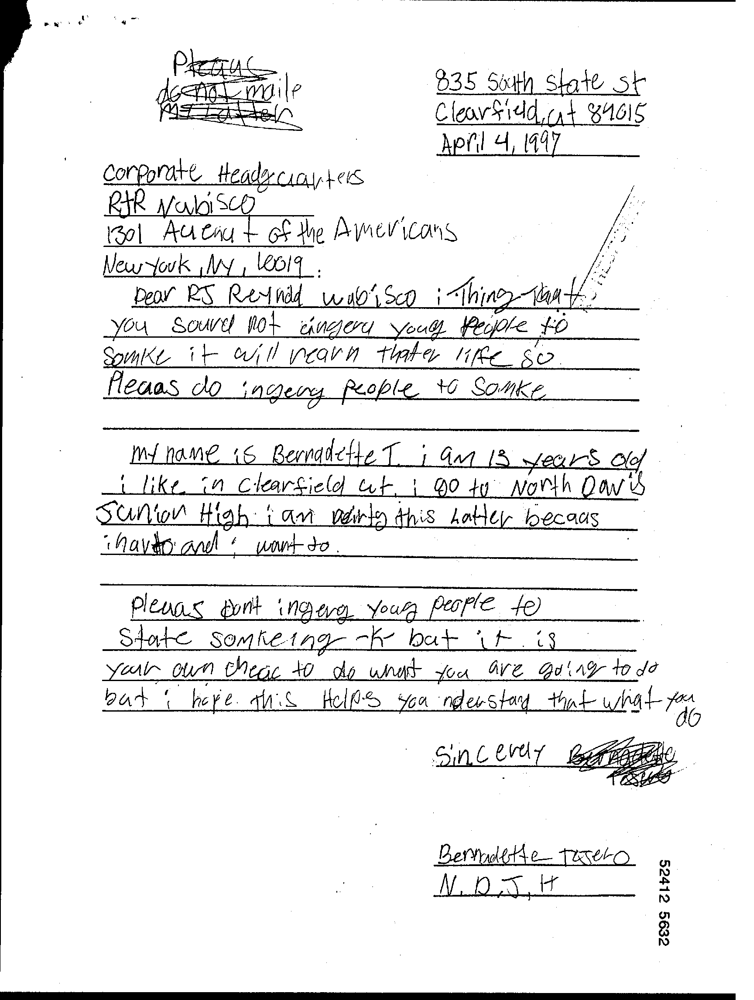 do not maile
835 South State St
Clearfield, ut 84015
April 4, 1997
Corporate Headqcuarters
RJR Nabisco
1301 Auenut of the Americans
New York, NY, 10019.
Dear RJ Reynald wabisco i Thing That
you sourd not ingerg young People to
Somke it will rearn thater life so
Pleaas do ingerg people to Somke
my name is Bernadette T. i am 13 years old
i like in Clearfield ut. i go to North Davis
Junion High i am this Latter becaas
i havto and i want to.
pleuas Dont ingerg young people to
State somkeing -k but it is
your own cheac to do what you are going to do
but i hope this Helps you nderstand that what you
do
Sincerely Bernadette
Bernadette
N. D. J. H
52412 5632